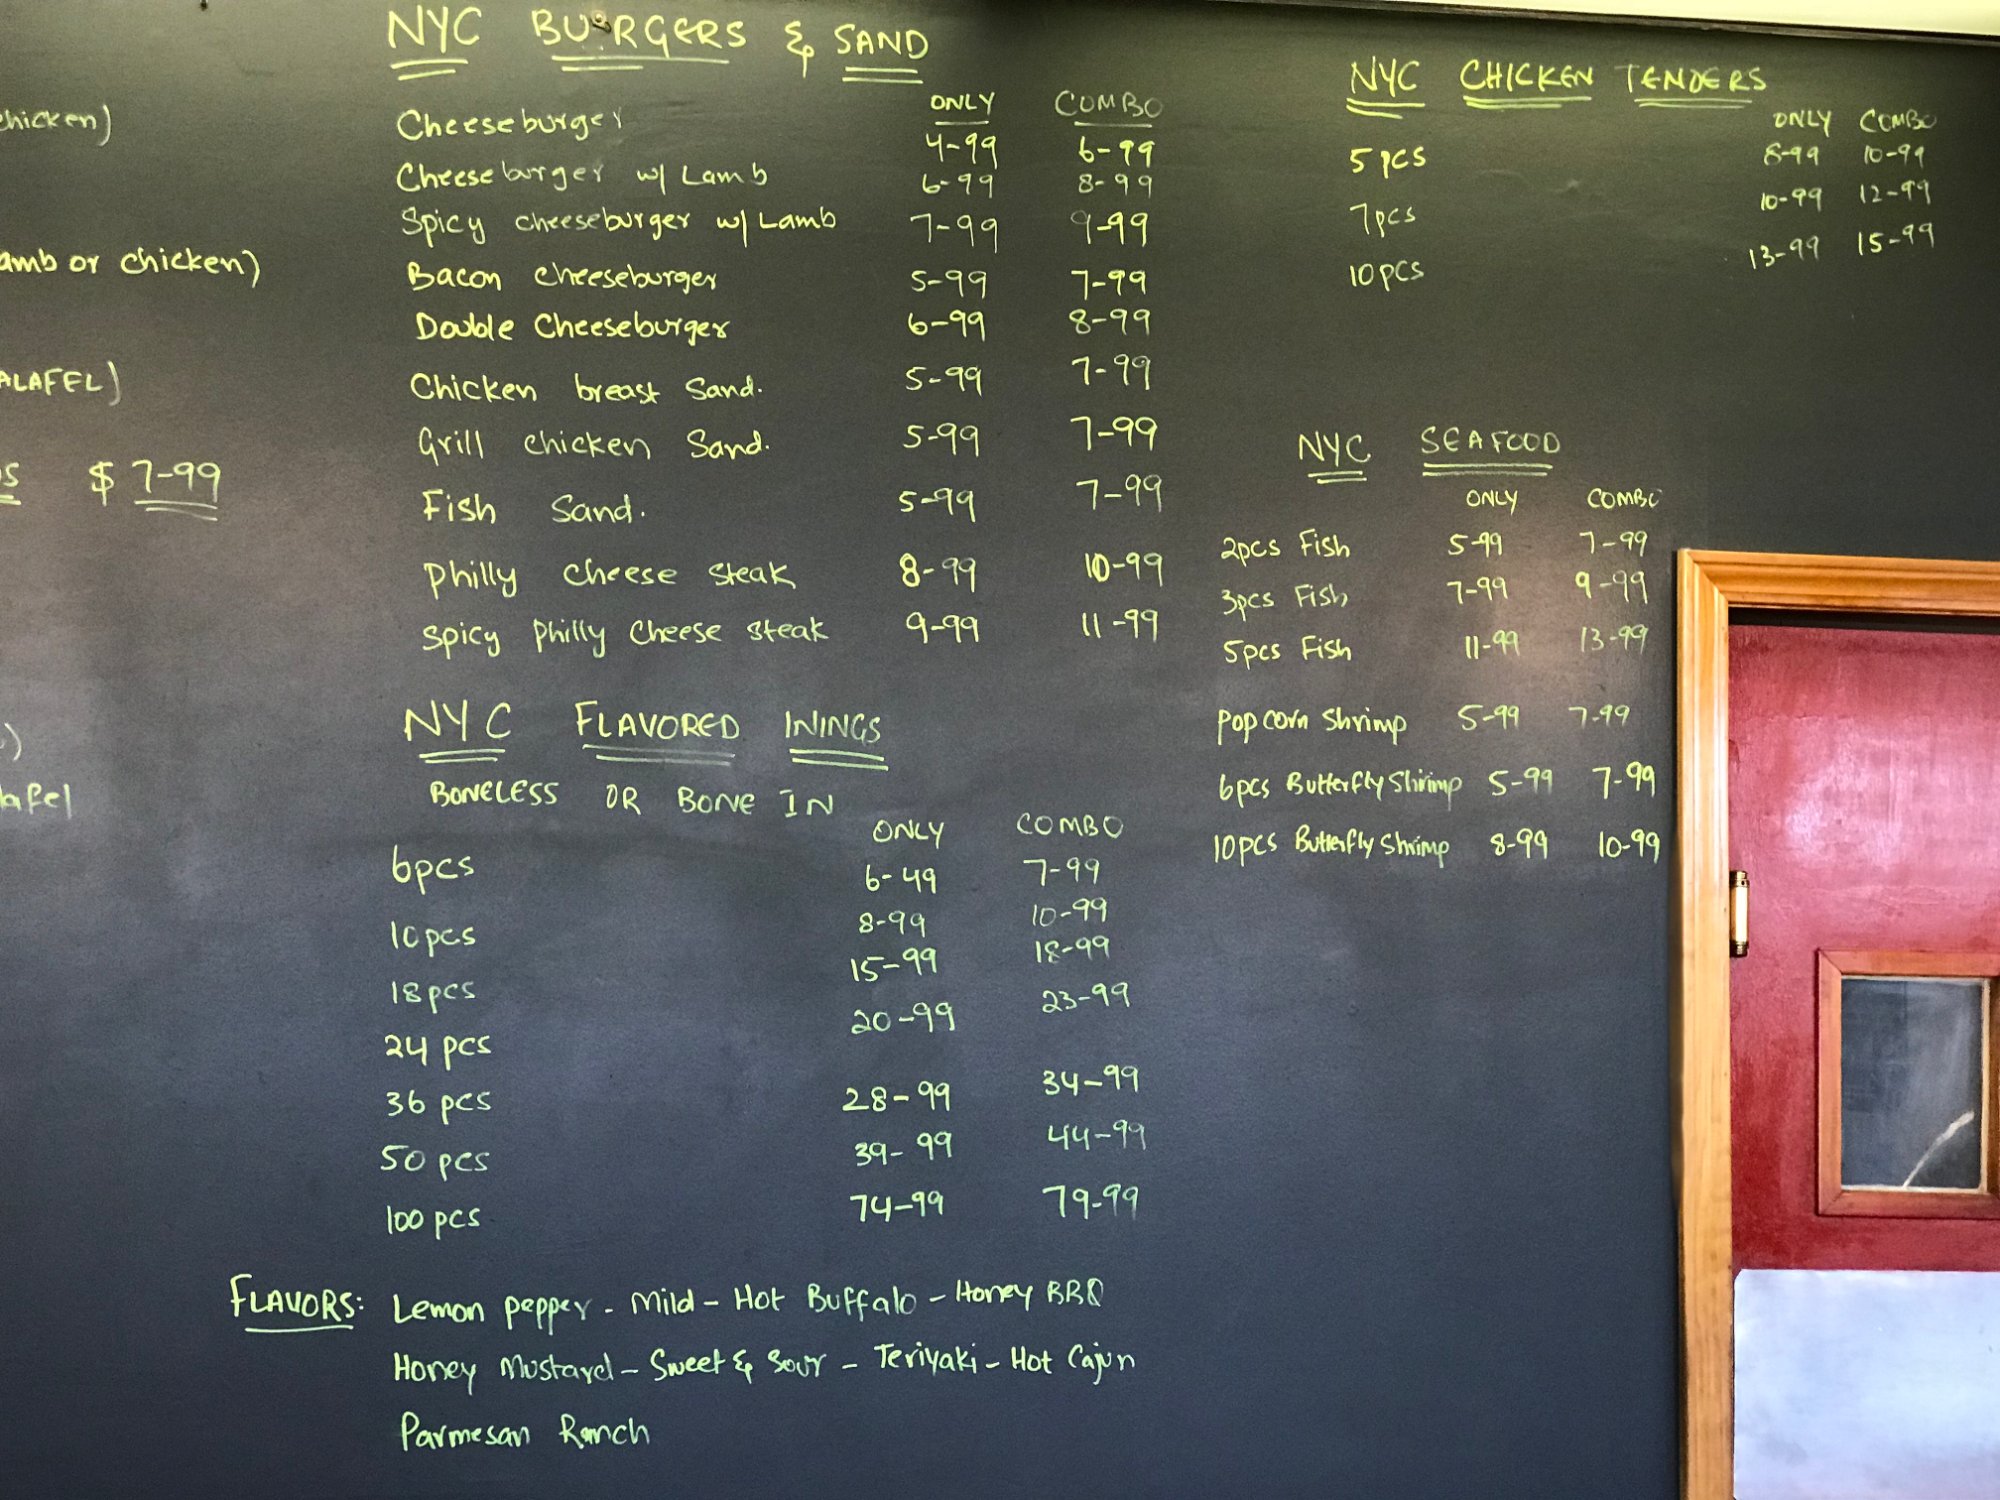 chicken)
amb or chicken)
ALAFEL)
$ 7-99
lafel
NYC BURGERS & SAND
ONLY COMBO
Cheeseburger 4-99 6-99
Cheeseburger w/ Lamb 6-99 8-99
Spicy cheeseburger w/ Lamb 7-99 9-99
Bacon cheeseburger 5-99 7-99
Double Cheeseburger 6-99 8-99
Chicken breast Sand. 5-99 7-99
Grill chicken Sand. 5-99 7-99
Fish Sand. 5-99 7-99
Philly cheese steak 8-99 10-99
Spicy Philly Cheese steak 9-99 11-99
NYC FLAVORED WINGS
BONELESS OR BONE IN
ONLY COMBO
6pcs 6-49 7-99
10pcs 8-99 10-99
18pcs 15-99 18-99
24 pcs 20-99 23-99
36 pcs 28-99 34-99
50 pcs 39-99 44-99
100 pcs 74-99 79-99
FLAVORS: Lemon pepper - Mild - Hot Buffalo - Honey BBQ
Honey Mustard - Sweet & Sour - Teriyaki - Hot Cajun
Parmesan Ranch
NYC CHICKEN TENDERS
ONLY COMBO
5pcs 8-99 10-99
7pcs 10-99 12-99
10pcs 13-99 15-99
NYC SEAFOOD
ONLY COMBO
2pcs Fish 5-99 7-99
3pcs Fish 7-99 9-99
5pcs Fish 11-99 13-99
Popcorn Shrimp 5-99 7-99
6pcs Butterfly Shrimp 5-99 7-99
10pcs Butterfly Shrimp 8-99 10-99